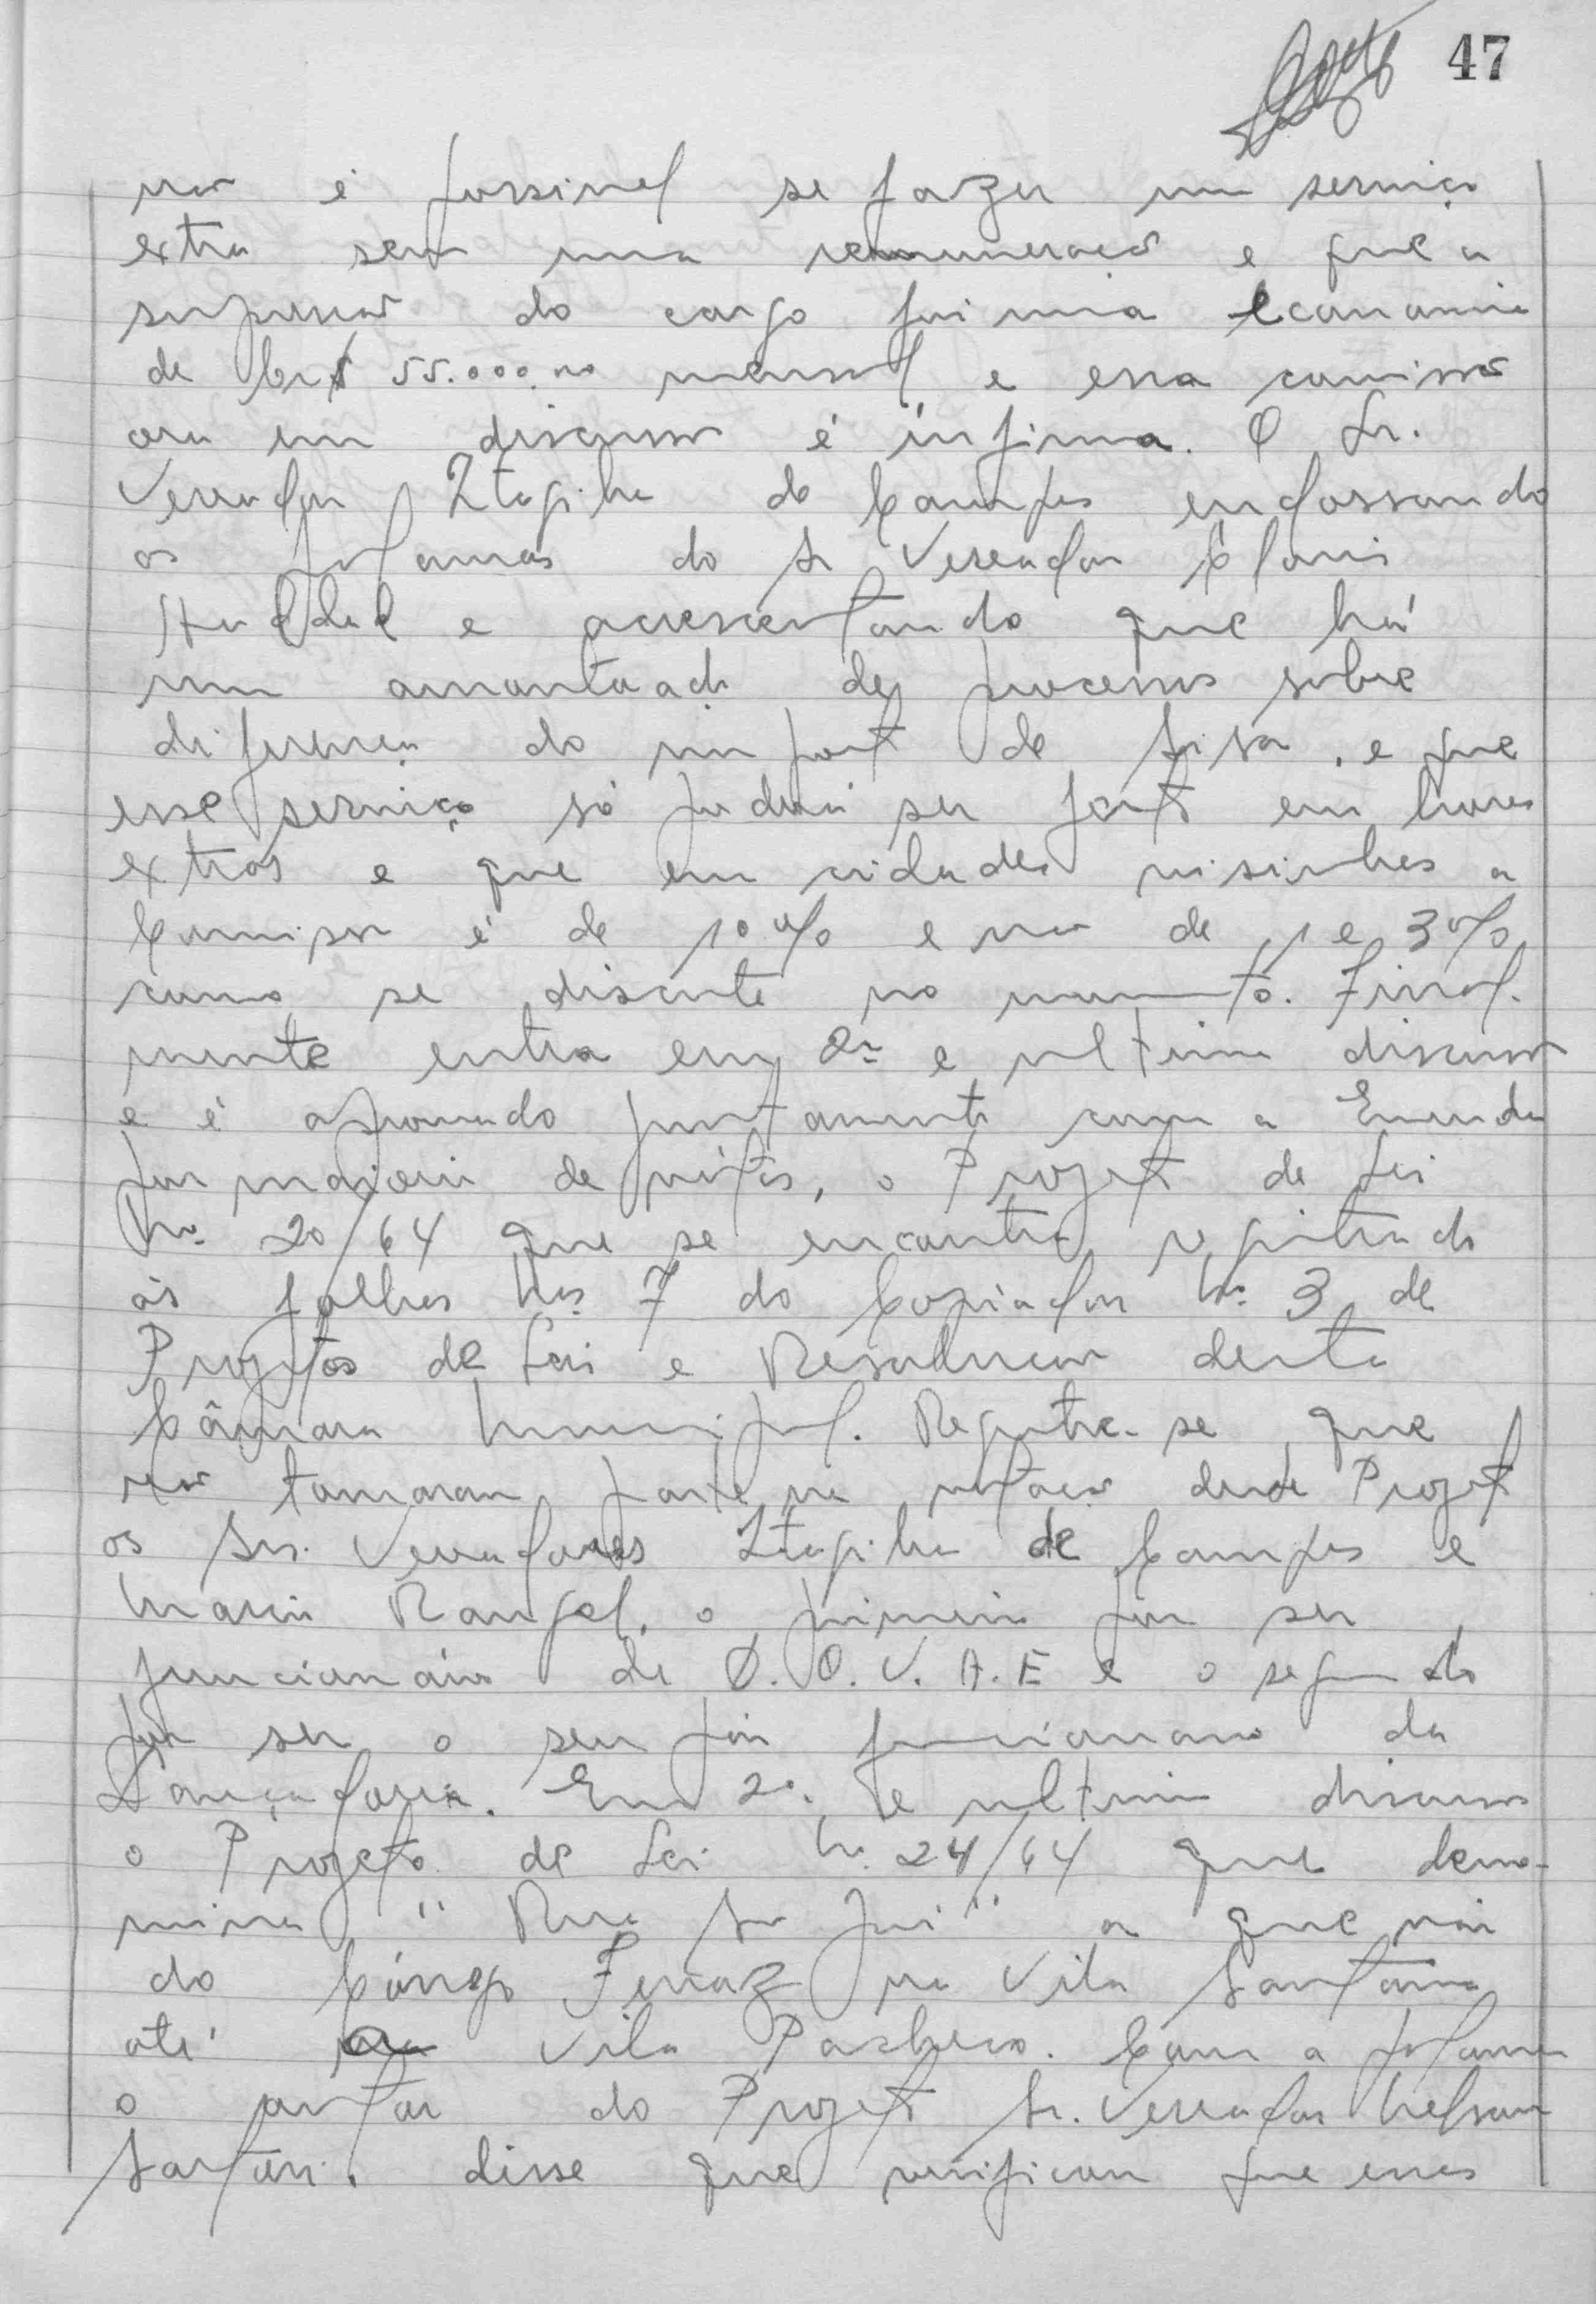 47
não é possivel se fazer um serviço
extra sem uma remuneração e que a
supressão do cargo foi uma economia
de Cr$ 55.000,00 mensal e essa comissão
ora em discussão é ínfima. O Sr.
Vereador Itagiba de Campos endossando
as palavras do Sr Vereador Clovis
e acrescentando que há
um amontoado de processos sobre
diferença do impost de sisa, e que
esse serviço só poderá ser feito em horas
extras e que em cidades visinhas a
Comissão é de 10% e não de 1 e 3%
como se discute no momento. Final-
mente entra em 2ª e ultima discussão
e é aprovado juntamente com a Emenda
por maioria de votos, o Projeto de Lei
Nº 20/64 que se encontra registrado
às folhas Nos 7 do Copiador Nº 3 de
Projetos de Lei e Resolucão desta
Câmara Municipal. Registre-se que
não tomaram parte na votação deste Projeto
os Srs. Vereadores Itagiba de Campos e
Mario Rangel, o primeiro por ser
funcionário do D.O.V.A.E e o segundo
por ser o seu pai funcionario da
Lançadoria. Em 2ª e ultima discussão
o Projeto de Lei Nº 24/64 que deno-
mina "Rua a que vai
do Córrego Ferraz na Vila Santana
até a Vila Pacheco. Com a palavra
o autor do Projeto Sr. Vereador Nelson
Sartori, disse que verificou que esses